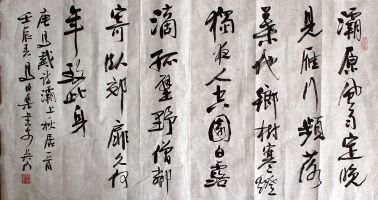 灞原風雨定晚
見雁行頻落
葉他鄉樹寒燈
獨夜人空園白露
滴孤壁野僧鄰
寄臥郊扉久何
年致此身
唐馬戴詩灞上秋居一首
壬辰